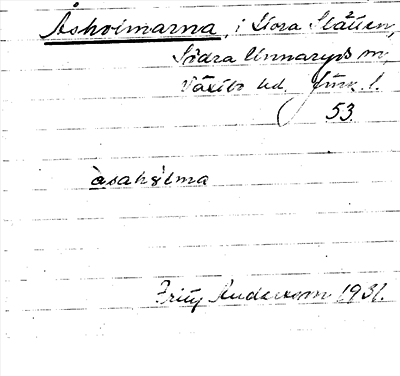 Åsholmarna, i Stora Slätten,
Södra Unnaryds sn,
Västbo hd. Jönk. l.
53.
åsahólma
Fritz Andersson 1931.